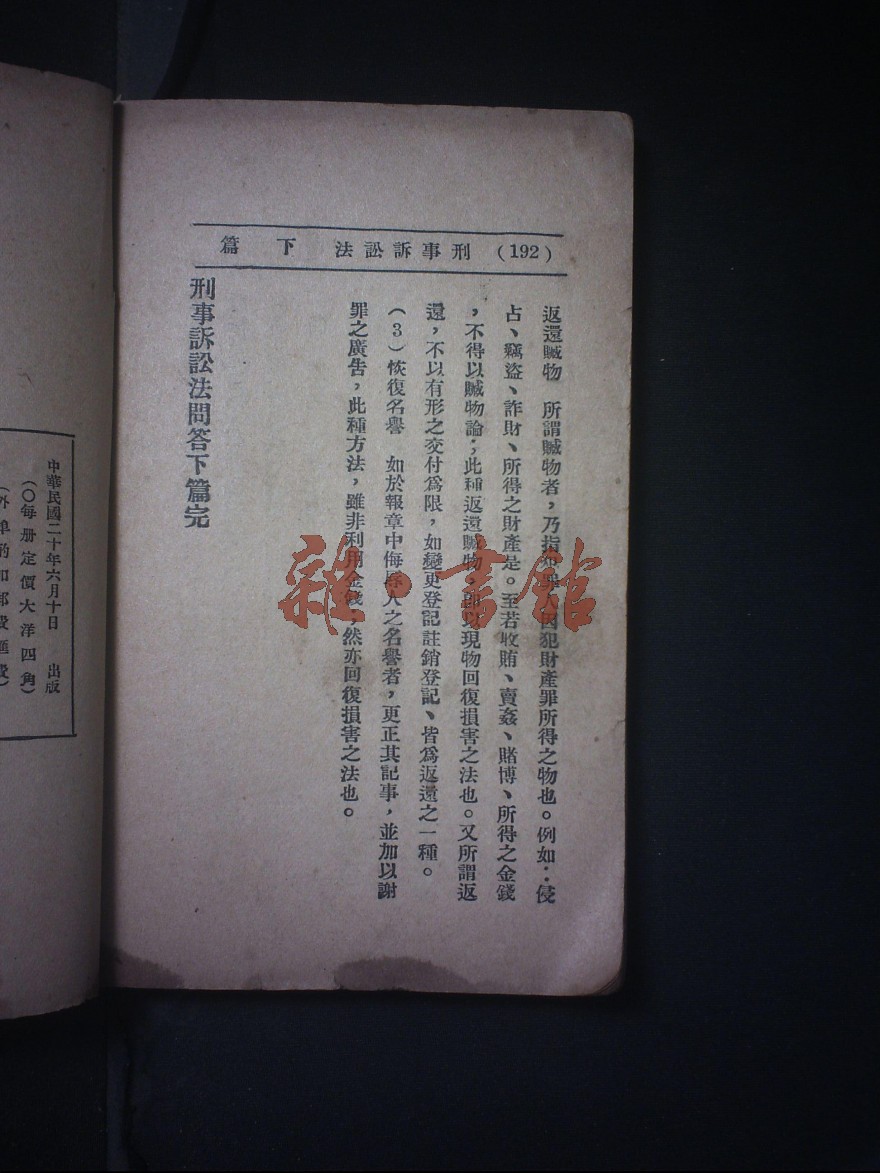 (192) 刑事訴訟法 下篇
返還贓物 所謂贓物者，乃指犯罪人因犯財產罪所得之物也。例如：侵
占、竊盜、詐財、所得之財產是。至若收賄、賣姦、賭博、所得之金錢
，不得以贓物論；此種返還贓物，卽以現物回復損害之法也。又所謂返
還，不以有形之交付爲限，如變更登記註銷登記、皆爲返還之一種。
(3)恢復名譽 如於報章中侮辱人之名譽者，更正其記事，並加以謝
罪之廣告，此種方法，雖非利用金錢，然亦回復損害之法也。
刑事訴訟法問答下篇完
中華民國二十年六月十日 出版
(〇每册定價大洋四角)
(外埠酌加郵費匯費)
雜·書館